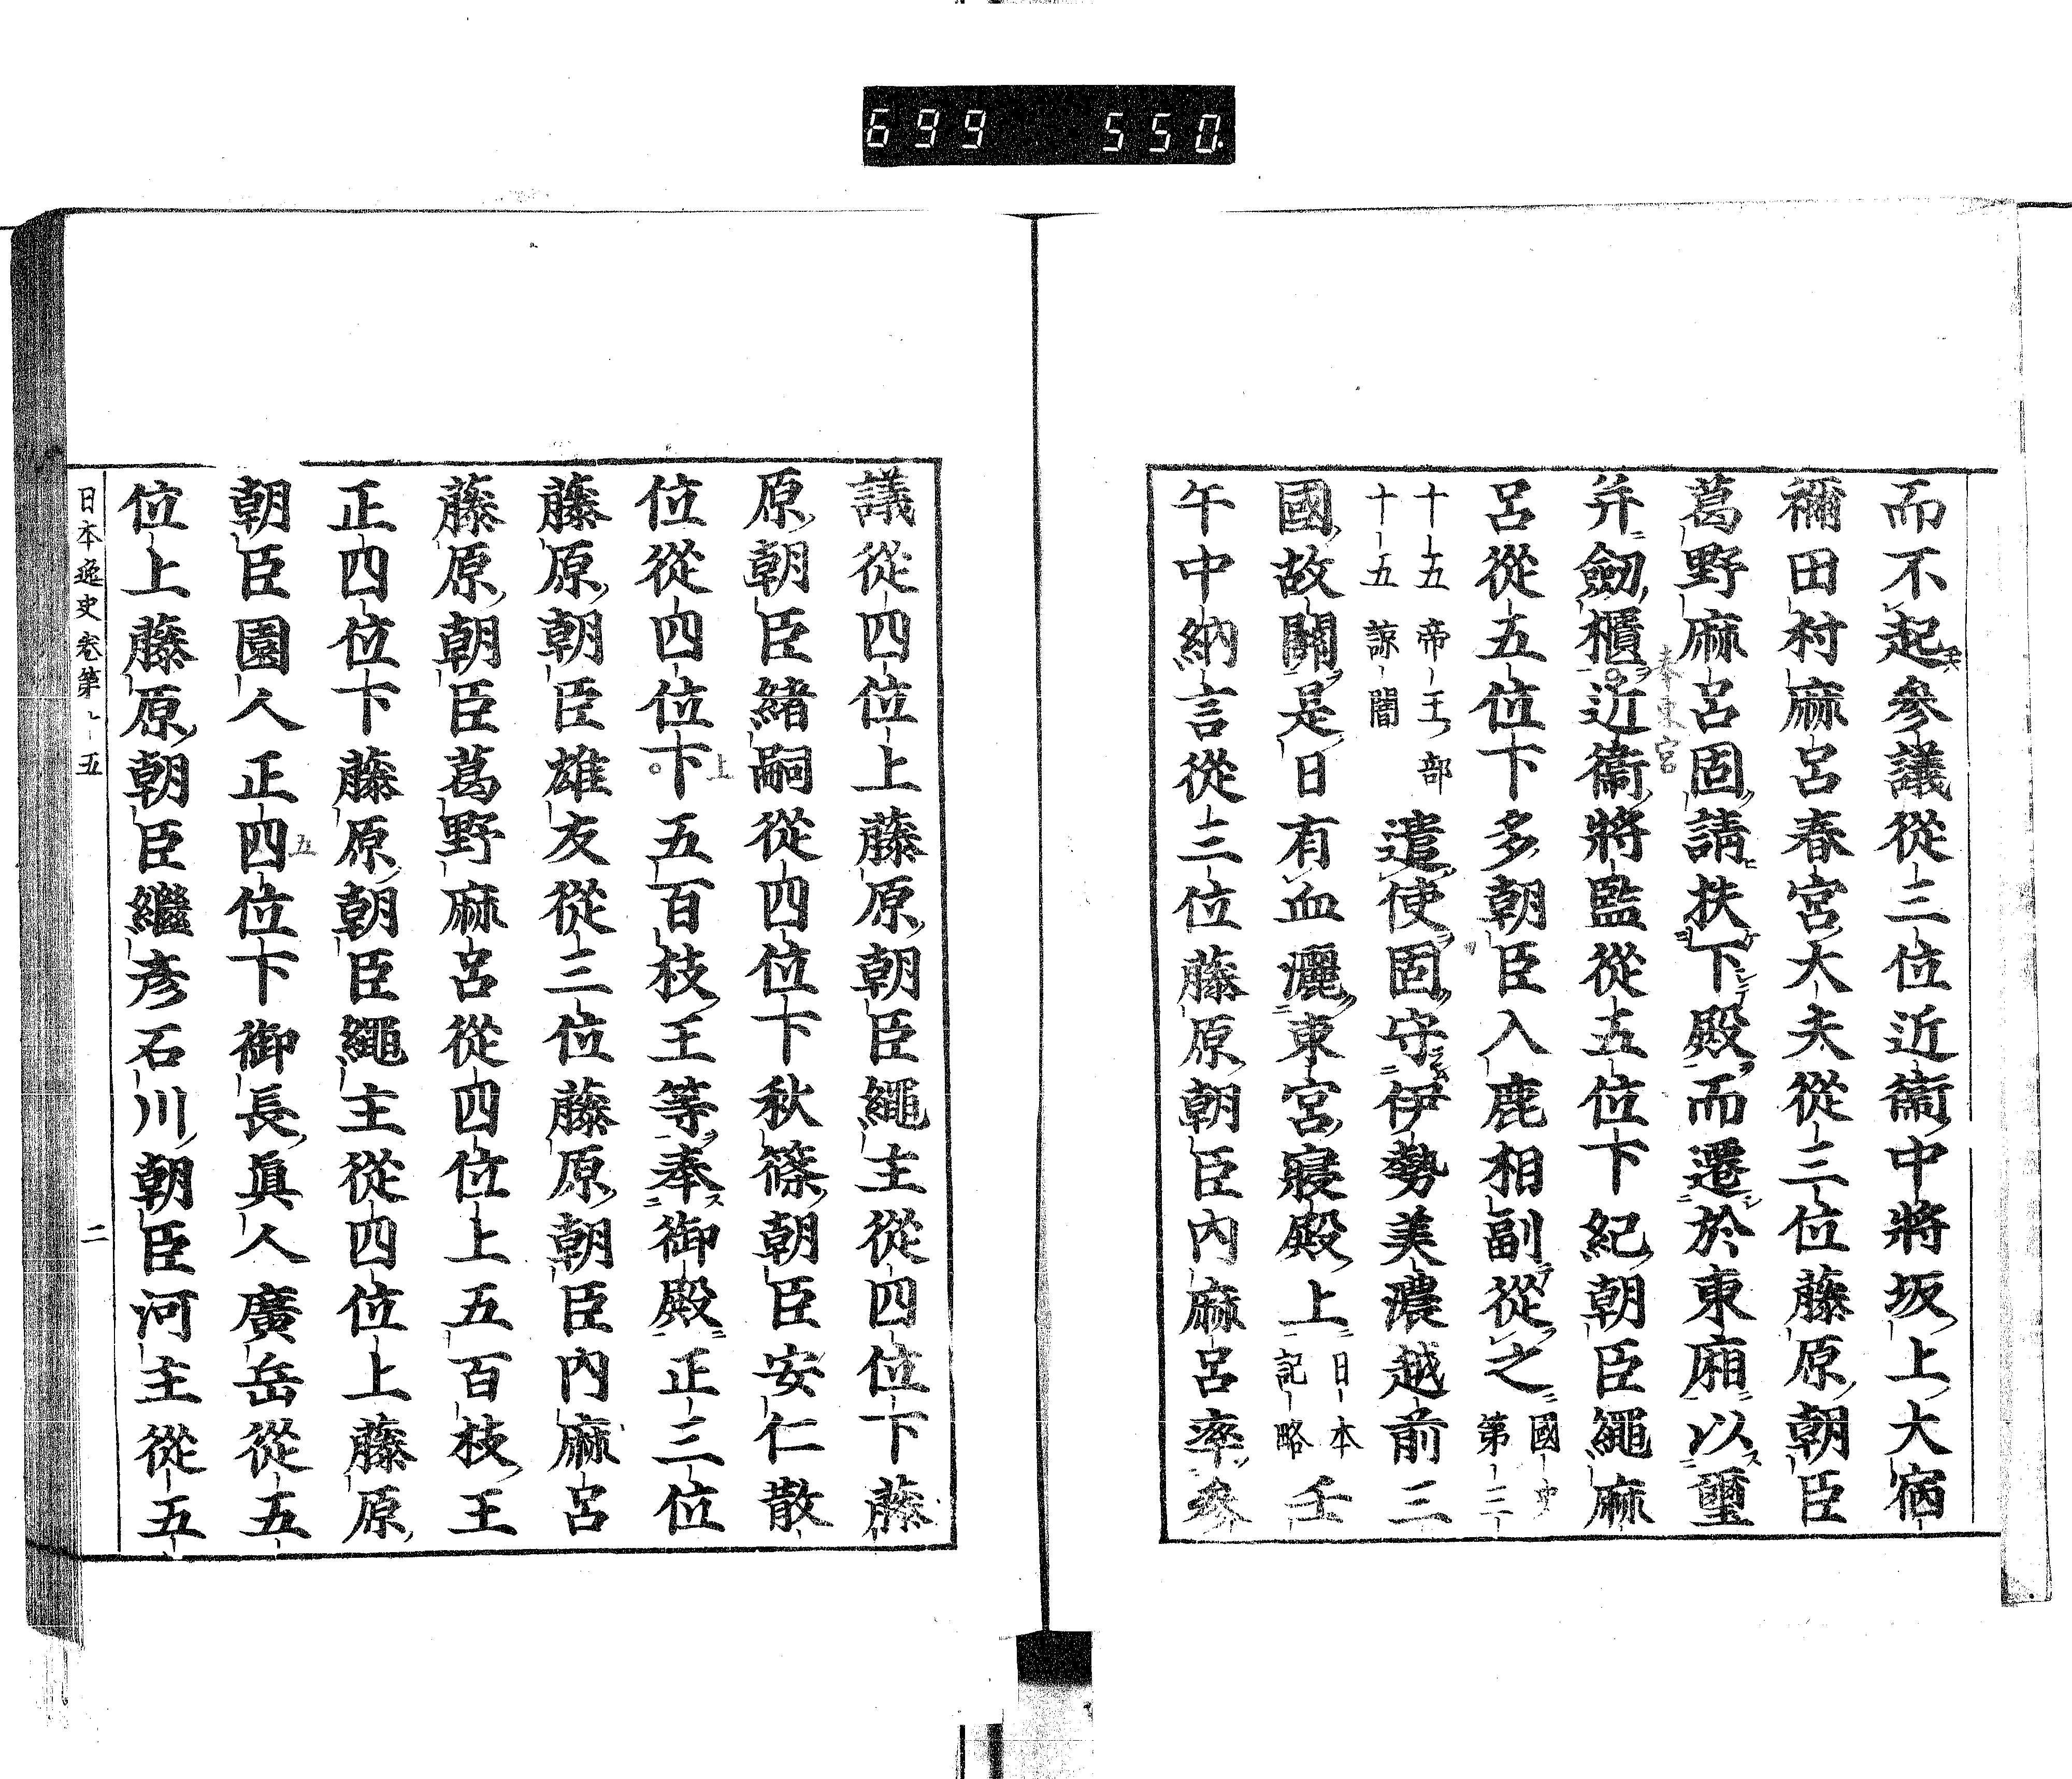 699 550
而不起參議從三位近衞中將坂上大宿
禰田村麻呂春宮大夫從三位藤原朝臣
葛野麻呂固請扶下殿而遷於東廂以璽
奉東宮
并劔櫃近衞將監從五位下紀朝臣繩麻
呂從五位下多朝臣入鹿相副從之國史
第三
十五帝王部
十五諒闇
遣使固守伊勢美濃越前三
國故關是日有血灑東宮寢殿上日本
記略
壬
午中納言從三位藤原朝臣內麻呂率參
議從四位上藤原朝臣繩主從四位下藤
原朝臣緖嗣從四位下秋篠朝臣安仁散
位從四位下五百枝王等奉御殿正三位
上
藤原朝臣雄友從三位藤原朝臣內麻呂
藤原朝臣葛野麻呂從四位上五百枝王
正四位下藤原朝臣繩主從四位上藤原
朝臣園人正四位下御長眞人廣岳從五
五
位上藤原朝臣繼彥石川朝臣河主從五
日本逸史卷第五 二